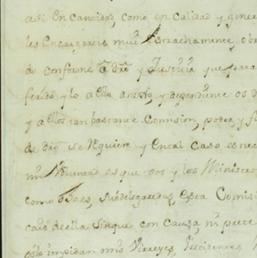 asi en cantidad como en calidad y gener
les Encargareis mui estrechamente, obr
do conforme a dro y Justicia que para
ferido y lo a ella anexo, y dependiente os d
y a ellos tan bastante Comision, poder y f
de dro se requiere y en tal caso es nec
mi voluntad es que vos y los Ministros
como Jueces, Subdelegados, Esta Comisi
cais de ella sin que con causa ni prete
os lo impidan mis Virreyes, Presidentes